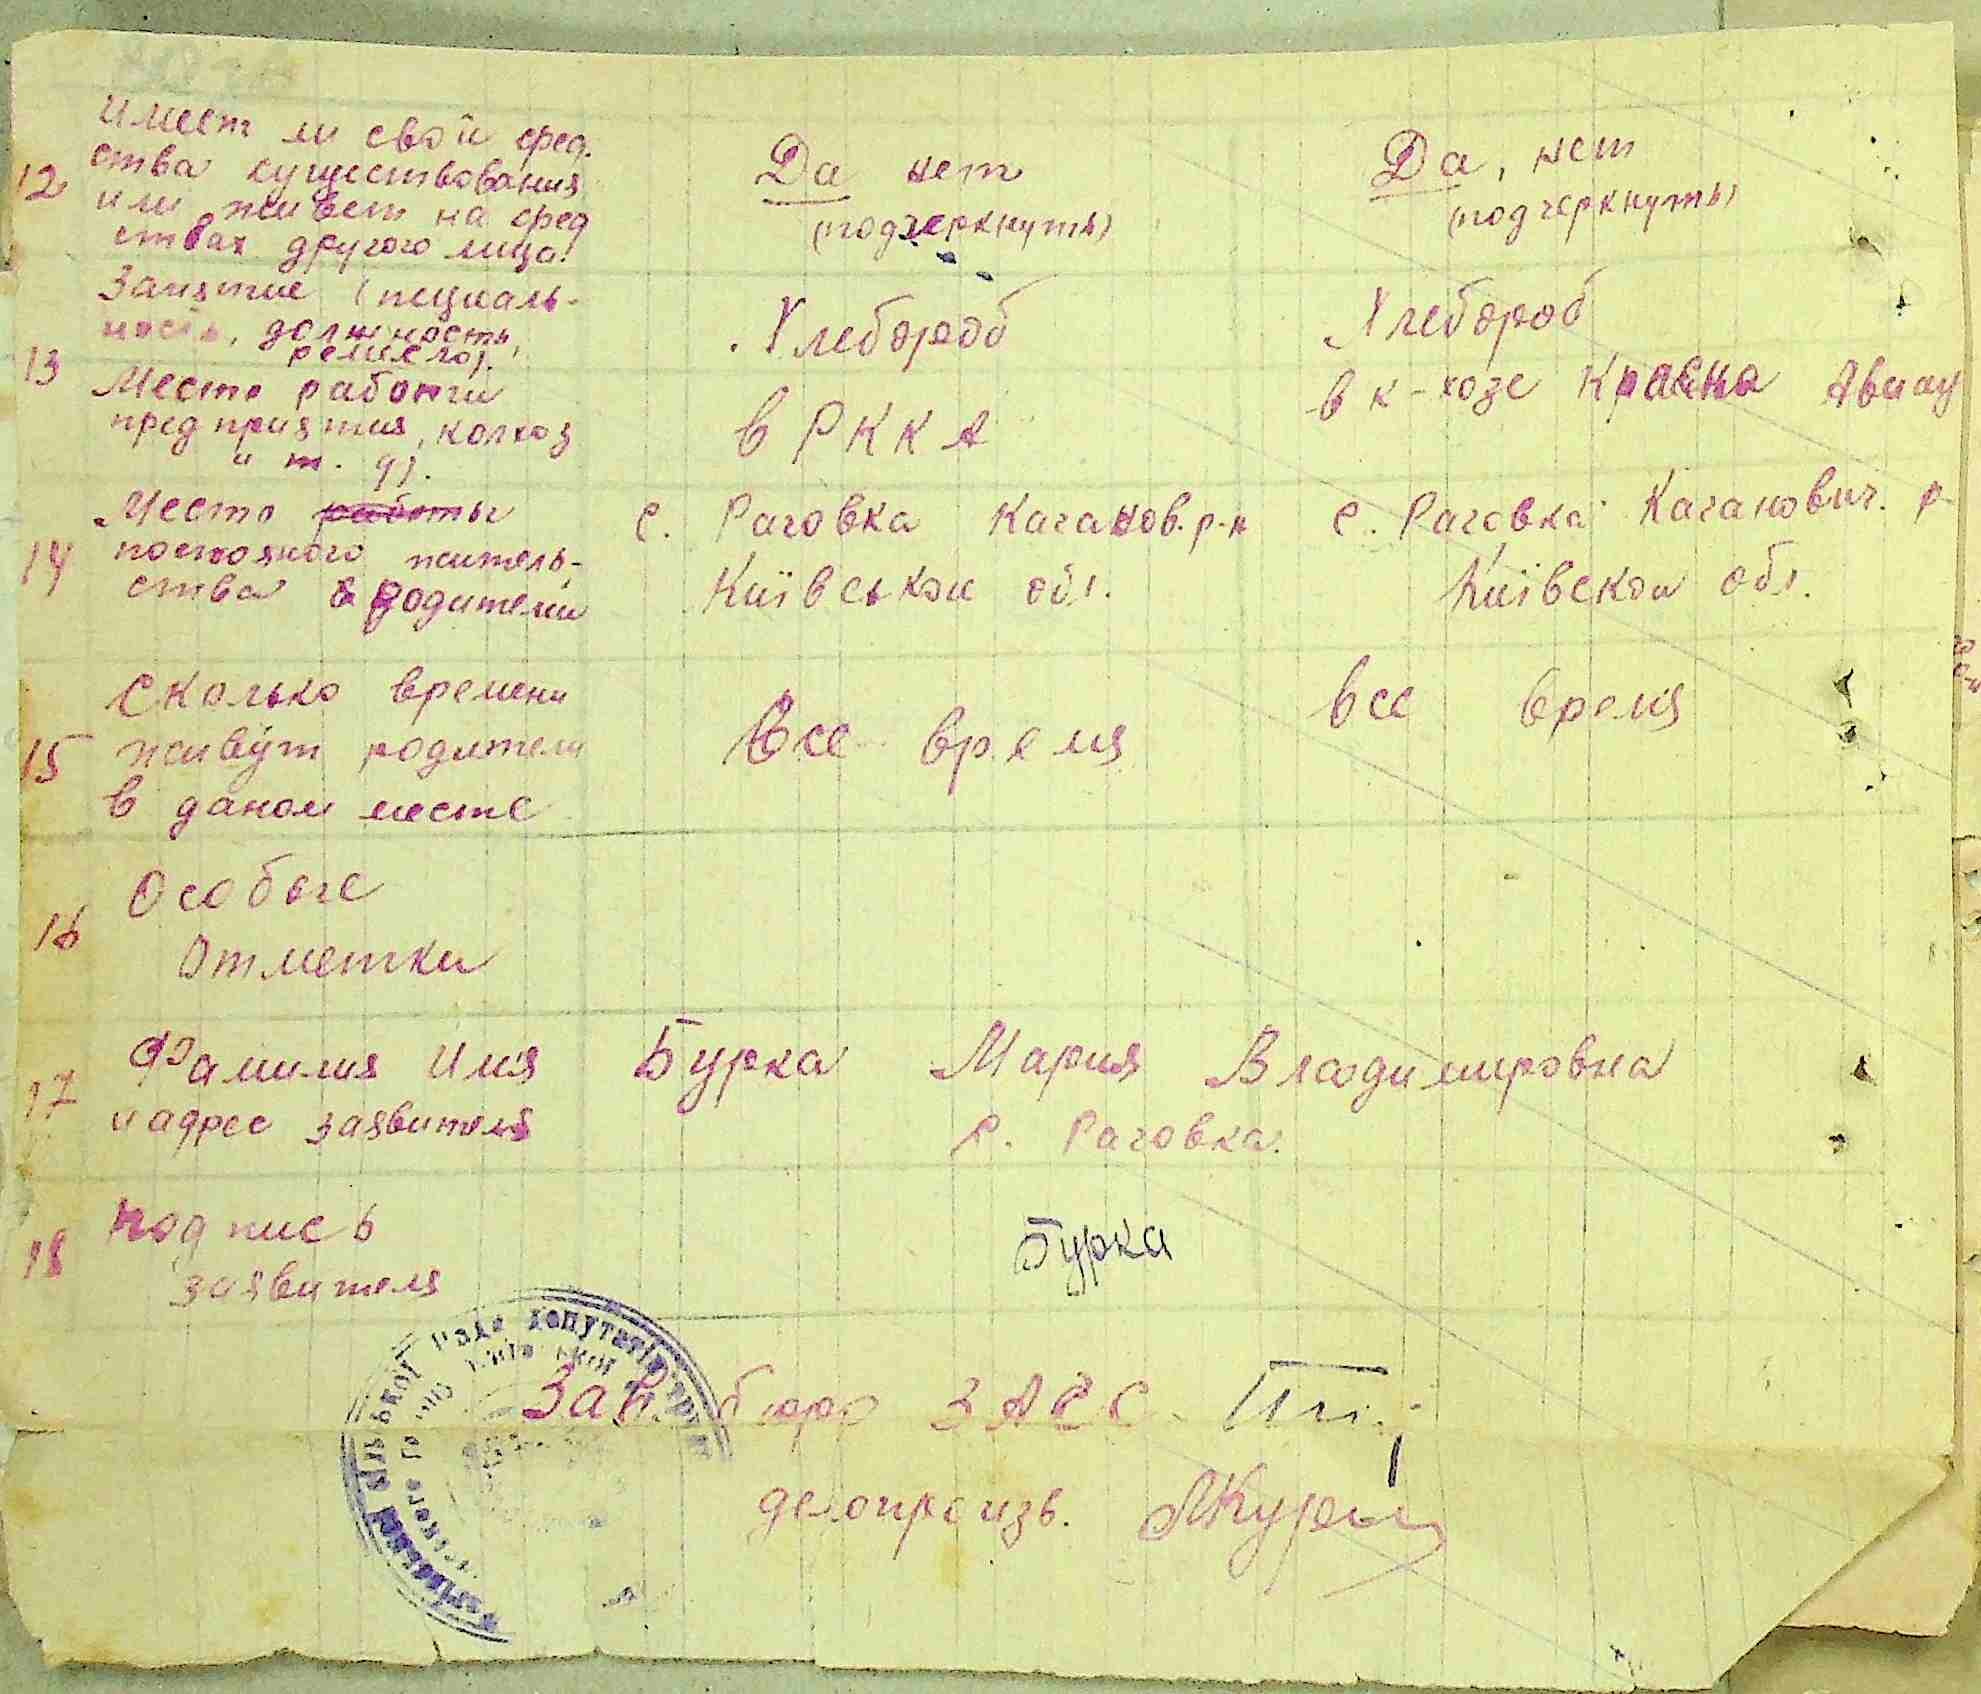 12 Имеет ли свои сред.
ства существования
или живет на сред
ствах другого лица?
Да нет
(подчеркнуть)
Да, нет
(подчеркнуть)
13 Занятие (пециаль-
ность, должность,
ремесло).
Место работы
предприятия, колхоз
и т. д).
Хлебороб
в РККА
Хлебороб
в к-хозе Краина Авиац
14 Место работы
постояного житель-
ства родители
с. Раговка Каганов. р-н
Київськои обл.
с. Раговка Каганович. р-
Київскои обл.
15 Сколько времени
живут родители
в даном месте
Все время
все время
16 Особые
Отметки
17 Фамилия Имя
и адрес заявителя
Бурка Мария Владимировна
с. Раговка.
18 подпись
заявителя
Бурка
Рада депутатів
Зав. бюро ЗАГС
делопроизв.